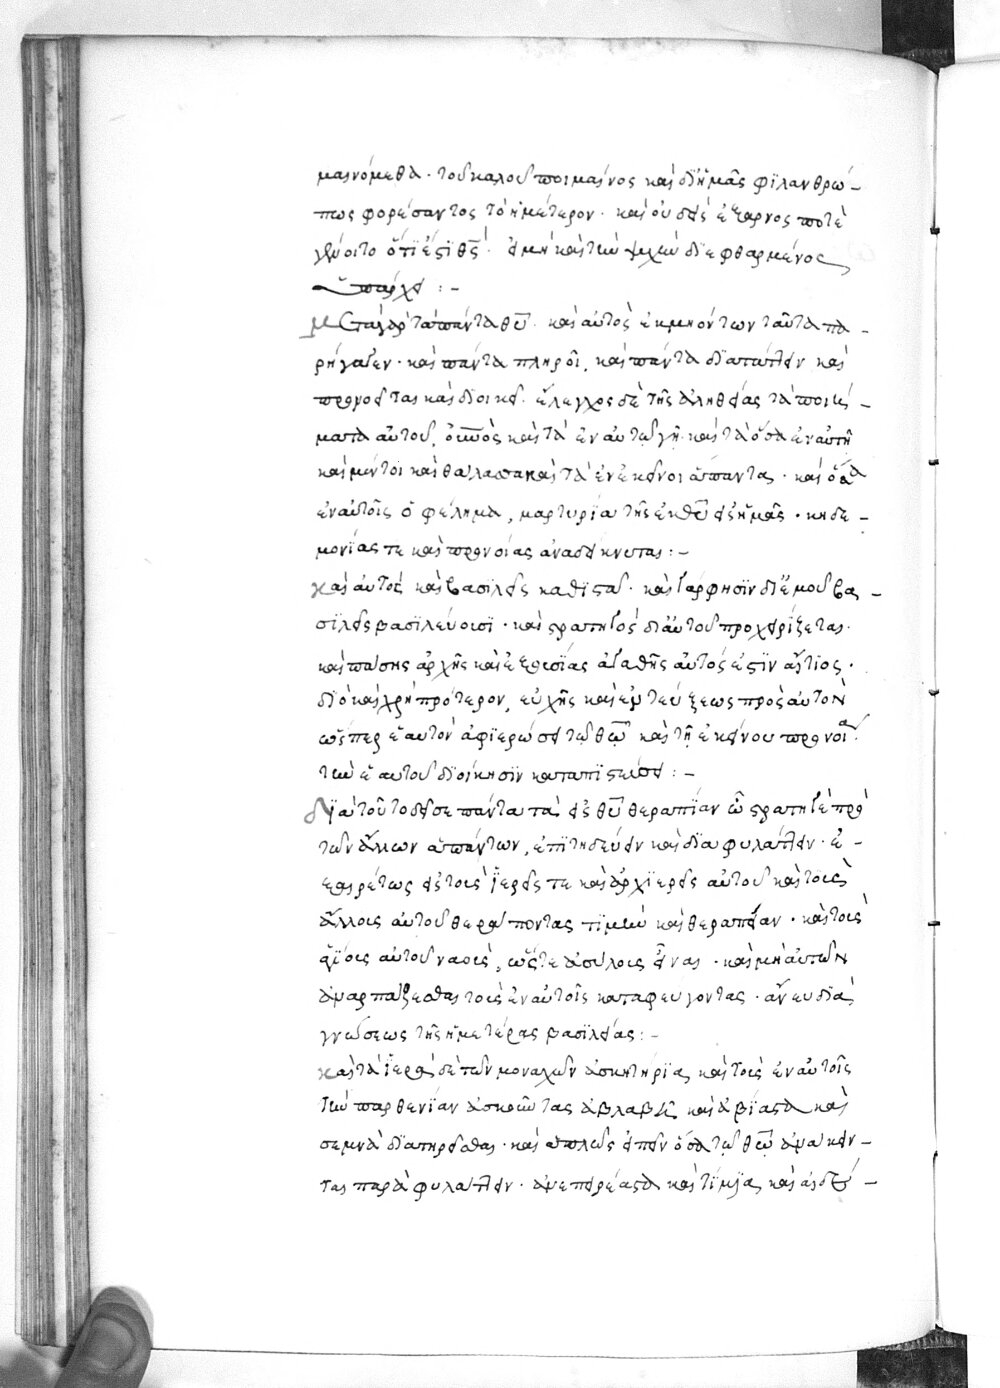 μαινόμεθα· τοῦ καλοῦ ποιμαίνος καὶ δι ἡμᾶς φιλανθρώ-
πως φορέσαντος τὸ ἡμέτερον· καὶ οὐδεὶς ἔξαρνος ποτὲ
γένοιτο ὅτι ἐστὶ θς· εἰ μὴ καὶ τὴν ψυχὴν διεφθαρμένος
ὑπάρχει :-
Μετὰ γὰρ τὰ πάντα θῦ· καὶ αὐτὸς ἐκ μὴ ὄντων ταῦτα πα-
ρήγαγεν· καὶ πάντα πληροῖ, καὶ πάντα διαπλάττειν καὶ
προνοεῖται καὶ διοικεῖ· ἔλεγχος δὲ τῆς ἀληθείας τὰ ποιή-
ματα αὐτοῦ, ὁ οὐνὸς καὶ τὰ ἐν αὐτῷ γῆ· καὶ τὰ ὅσα ἐν αὐτῇ
καὶ μέντοι καὶ θάλασσα καὶ τὰ ἐν ἐκείνοι ἅπαντα· καὶ ὅσα
ἐν αὐτοῖς ὀφείλημα, μαρτυρία τῆς ἐκ θῦ εἰς ἡμᾶς· κηδε-
μονίας τε καὶ προνοίας ἀναδείκνυται :-
Καὶ αὐτὸς καὶ βασιλεῖς καθιστᾶ· καὶ γάρ φησιν δι ἐμοῦ βα-
σιλεῖς βασιλεύουσι· καὶ στρατηγὸς δι αὐτοῦ προχειρίζεται·
καὶ πάσης ἀρχῆς καὶ ἐξουσίας ἀγαθῆς αὐτός ἐστιν αἴτιος·
διὸ καὶ χρὴ πρότερον, εὐχῆς καὶ ἐμτεύξεως πρὸς αὐτὸν
ὥσπερ ἑαυτὸν ἀφιερῶσαι τῷ θῶ καὶ τῇ ἐκείνου προνοία·
τὴν ἑαυτοῦ διοίκησιν καταπιστεῦσαι :-
Διὰ τοῦτο δεῖ σε πάντα τὰ εἰς θῦ θεραπίαν ὦ στρατηγὲ πρὸ
τῶν ἄλλων ἁπάντων, ἐπιτηδεύειν καὶ διαφυλάττειν· ἐ-
ξαιρέτως εἰς τοὺς ἱερεῖς τε καὶ ἀρχιερεῖς αὐτοῦ καὶ τοὺς
ἄλλους αὐτοῦ θεράποντας τιμὴν καὶ θεραπείαν· καὶ τοὺς
ἁγίους αὐτοῦ ναοὺς, ὥστε ἀσύλους εἶναι· καὶ μὴ αὐτῶν
ἀναρπάζεσθαι τοὺς ἐν αὐτοῖς καταφεύγοντας· ἄνευ δια
γνώσεως τῆς ἡμετέρας βασιλείας :-
Καὶ τὰ ἱερὰ δὲ τῶν μοναχῶν ἀσκητήρια, καὶ τοὺς ἐν αὐτοῖς
τὴν παρθενίαν ἀσκοῦντας ἀβλαβῆ καὶ ἀβίαστα καὶ
σεμνὰ διατηρεῖσθαι· καὶ ἁπλῶς εἰπεῖν ὅσα τῷ θῶ ἀνάκειν-
ται παραφυλάττειν· ἀνεπηρέαστα καὶ τίμια, καὶ αἰδέσ-